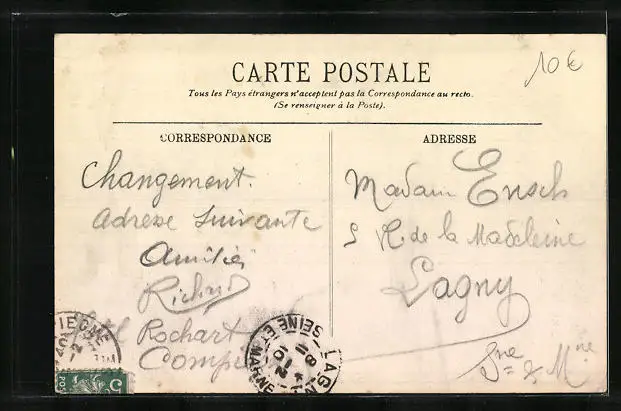 10€
CARTE POSTALE
Tous les Pays étrangers n'acceptent pas la Correspondance au recto.
(Se renseigner à la Poste).
CORRESPONDANCE
Changement.
Adresse Suivante
Amitiés
Richard
Rochart
ADRESSE
Madam Ensch
5 R. de la Madeleine
Lagny
Sne & Mne
LAGNY
SEINE ET MARNE
5c